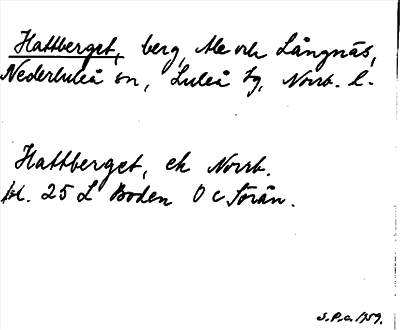 Hattberget, berg, Ale och Långnäs,
Nederluleå sn, Luleå tg, Norrb. l.
Hattberget, ek Norrb.
bl. 25 L Boden O c Sörån.
S.P.o. 1959.